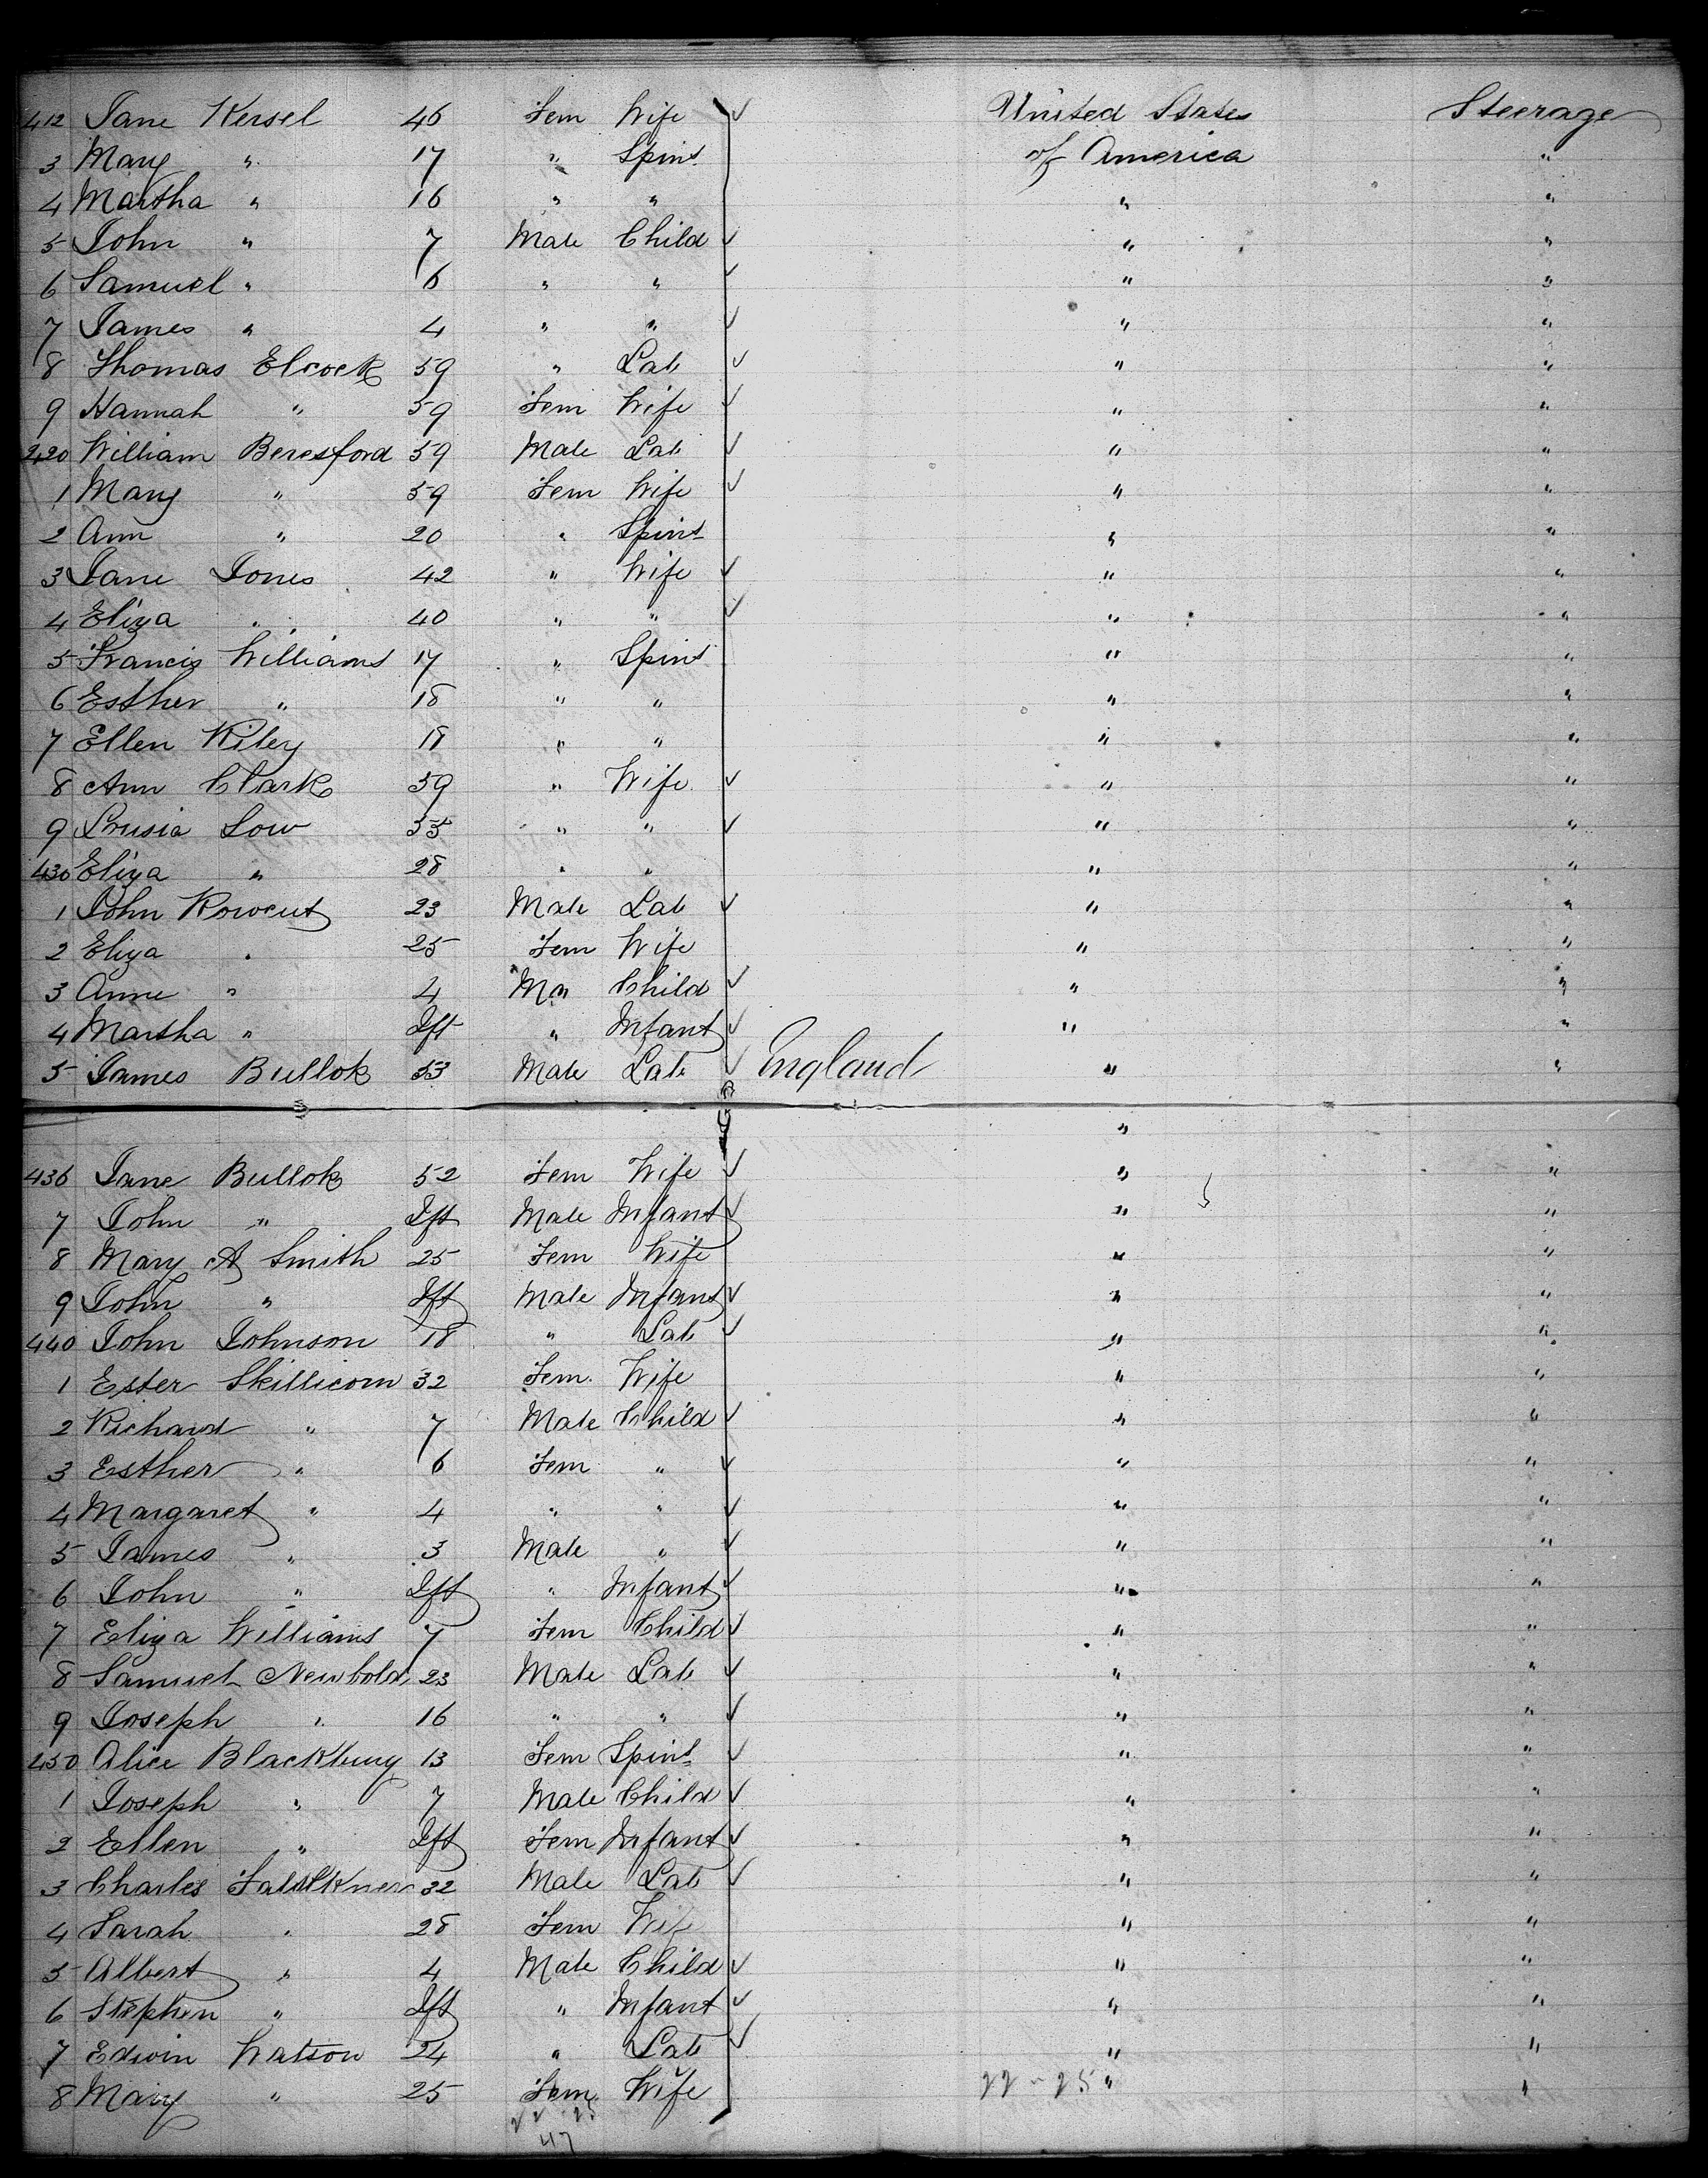 412 Jane Kersel 46 Fem Wife ✓ United States Steerage
3 Mary " 17 " Spins of America "
4 Martha " 16 " " " "
5 John " 7 Male Child ✓ " "
6 Samuel " 6 " " ✓ " "
7 James " 4 " " ✓ " "
8 Thomas Elcock 59 " Lab ✓ " "
9 Hannah " 59 Fem Wife ✓ " "
420 William Beresford 59 Male Lab ✓ " "
1 Mary " 59 Fem Wife ✓ " "
2 Ann " 20 " Spins " "
3 Jane Jones 42 " Wife ✓ " "
4 Eliza " 40 " " ✓ " "
5 Francis Williams 17 " Spins " "
6 Esther " 18 " " " "
7 Ellen Riley 18 " " " "
8 Ann Clark 59 " Wife ✓ " "
9 Low 35 " " ✓ " "
430 Eliza " 28 " " " "
1 John Rowcut 23 Male Lab ✓ " "
2 Eliza " 25 Fem Wife " "
3 Anne " 4 " Child ✓ " "
4 Martha " Ift " Infant ✓ " "
5 James Bullok 53 Male Lab ✓ England " "
"
436 Jane Bullok 52 Fem Wife ✓ " "
7 John " Ift Male Infant ✓ " "
8 Mary A Smith 25 Fem Wife " "
9 John " Ift Male Infant ✓ " "
440 John Johnson 18 " Lab ✓ " "
1 Ester Skillicorn 32 Fem Wife " "
2 Richard " 7 Male Child ✓ " "
3 Esther " 6 Fem " ✓ " "
4 Margaret " 4 " " ✓ " "
5 James " 3 Male " ✓ " "
6 John " Ift " Infant ✓ " "
7 Eliza Williams 7 Fem Child ✓ " "
8 Samuel Newbold 23 Male Lab ✓ " "
9 Joseph " 16 " " ✓ " "
450 Alice Blackbury 13 Fem Spins ✓ " "
1 Joseph " 7 Male Child ✓ " "
2 Ellen " Ift Fem Infant ✓ " "
3 Charles Faulkner 32 Male Lab ✓ " "
4 Sarah " 28 Fem Wife " "
5 Albert " 4 Male Child ✓ " "
6 Stephen " Ift " Infant ✓ " "
7 Edwin Watson 24 " Lab ✓ " "
8 Mary " 25 Fem Wife 22 - 25 " "
22 - 25
47